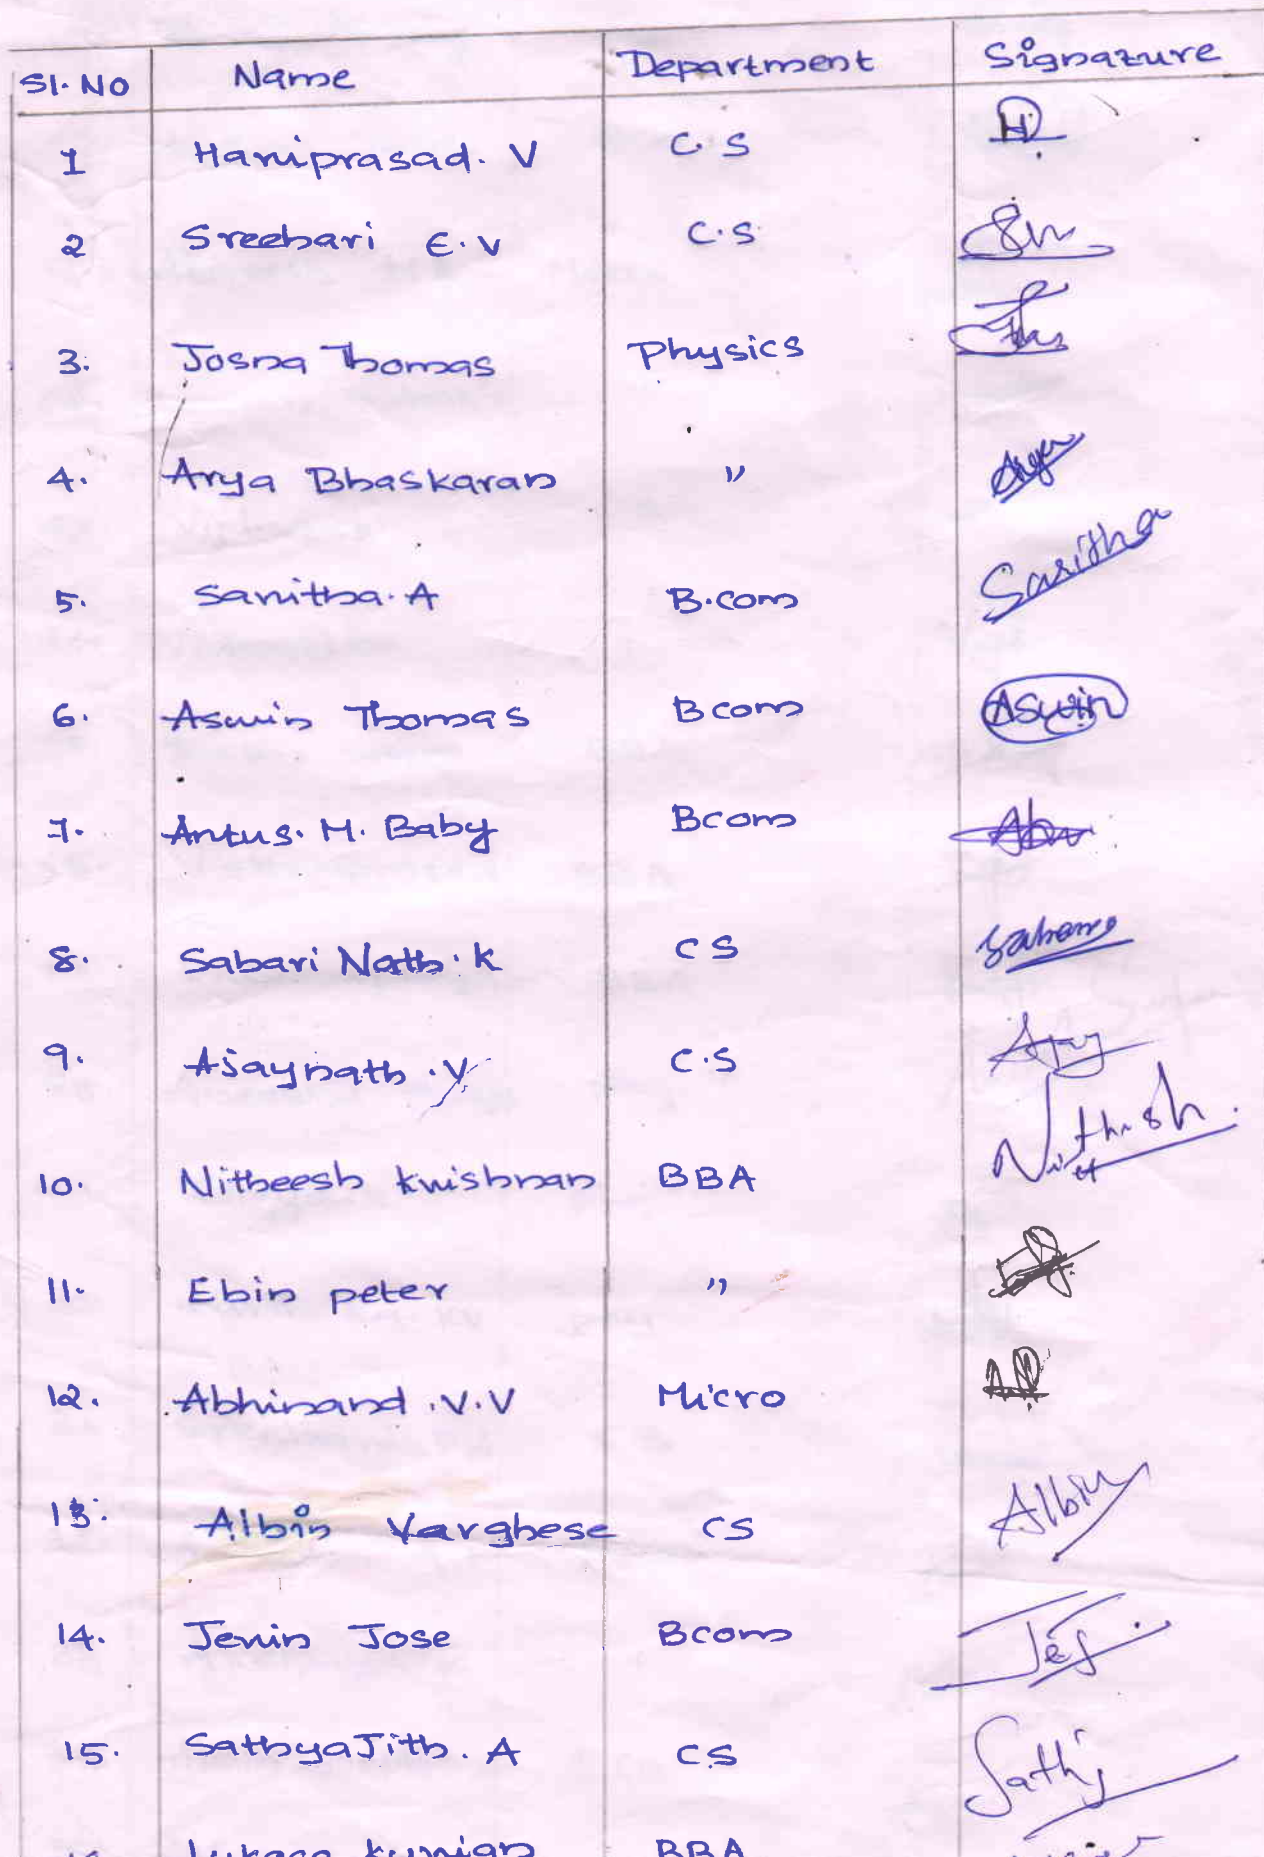 Sl. No Name Department Signature
1 Hariprasad. V C.S H
2 Sreehari E.V C.S
3. Josna Thomas Physics
4. Arya Bhaskaran " Arya
5. Saritha. A B.com Saritha
6. Aswin Thomas Bcom Aswin
7. Antus. M. Baby Bcom
8. Sabari Nath. K CS
9. Ajaynath. V C.S
10. Nitheesh Krishnan BBA
11. Ebin peter "
12. Abhinand .V.V Micro
13. Albin Varghese CS Albin
14. Jerin Jose Bcom
15. SathyaJith. A CS
Kurian BBA